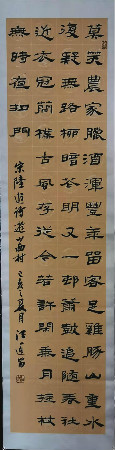 莫笑農家臘酒渾豐年留客足雞豚山重水
復疑無路柳暗花明又一邨簫鼓追隨春社
近衣冠簡樸古風存從今若許閒乘月拄杖
無時夜扣門
宋陸游詩遊山西村 己亥夏月